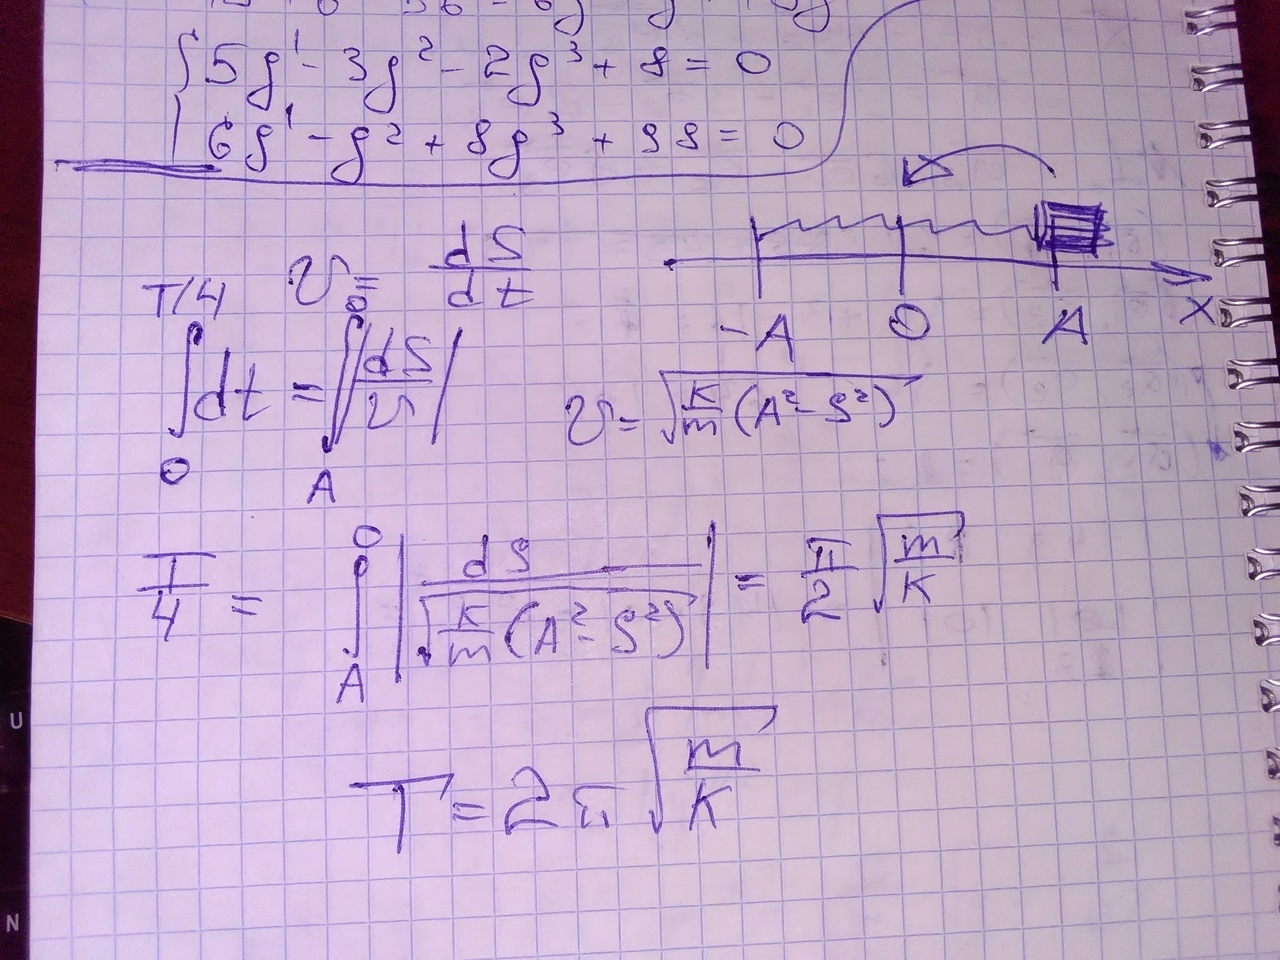 5g¹ - 3g² - 2g³ + 8 = 0
6g¹ - g² + 8g³ + 98 = 0
-A O A X
V = dS/dt
∫₀^(T/4) dt = ∫_A^0 |dS/V|
V = √(K/m (A² - S²))
T/4 = ∫_A^0 |dS/√(K/m (A² - S²))| = π/2 √(m/K)
T = 2π √(m/K)
U
N